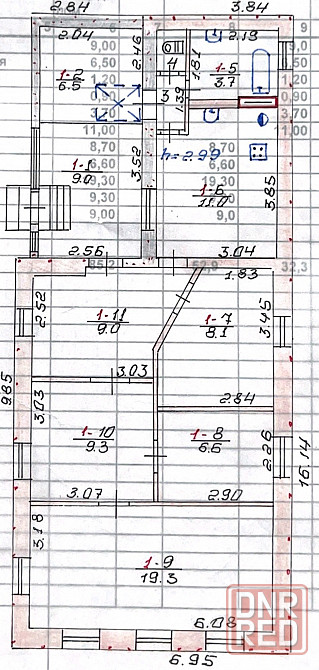 2.84 3.84
2.04 2.46 1.81 2.13
9
9,00 0,90
1-2
6.5
4
3
1.39
1-5
3.7
11,00
h=2.99
1-1
9.0
3.52
8,70
6,60
19,30
9,30
9,00
1-6
11.0
8,70
6,60
19,30
9,0
3.85
2.56 3.04
85,2 52,9 32,3
1.83
2.52
1-11
9.0
1-7
8.1
3.45
3.03 2.84
9.85
3.03
1-10
9.3
1-8
6.6
2.26
16.14
3.07 2.90
3.18
1-9
19.3
6.08
6.95
DNR
RED